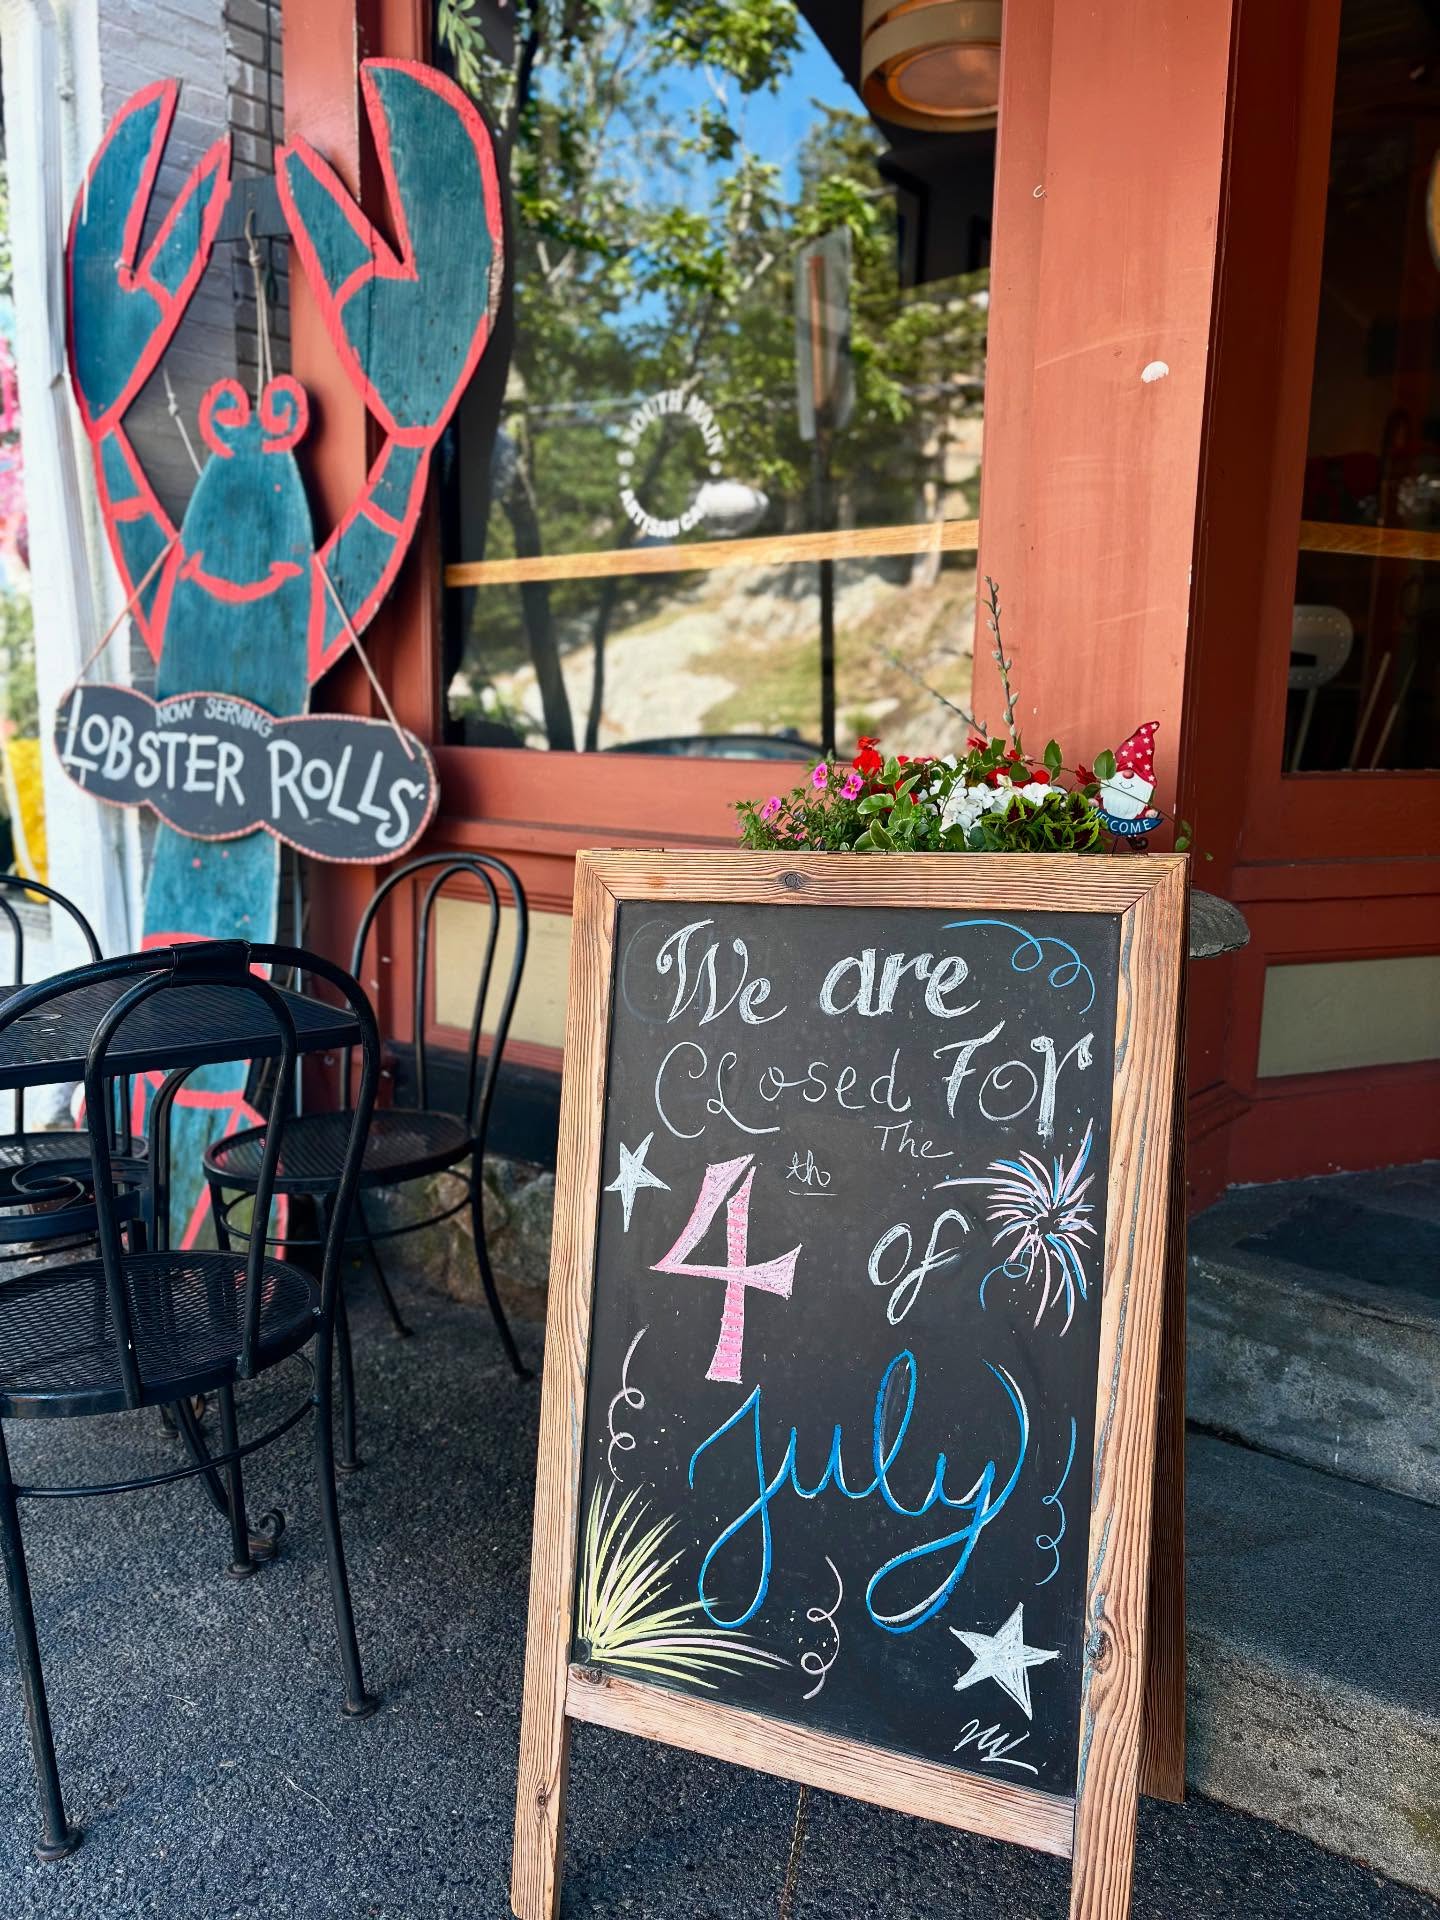 NOW SERVING
LOBSTER ROLLS
SOUTH MAIN
ARTISAN
WELCOME
We are
CLosed For
The
4th of
July